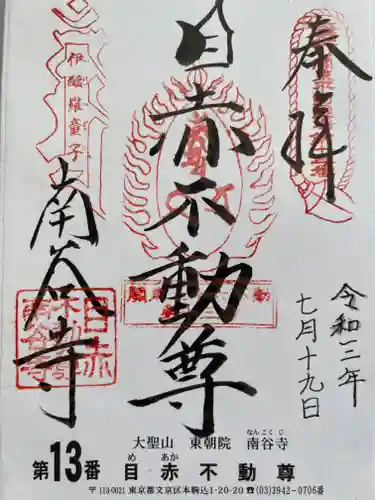 奉拝
目赤不動尊
伊醯羅童子
南谷寺
令和三年
七月十九日
目赤
不動尊
南谷寺
大聖山 東朝院 南谷寺
なんこくじ
第13番 目赤不動尊
め あか
〒113-0021 東京都文京区本駒込1-20-20 ☎(03)3942-0706番